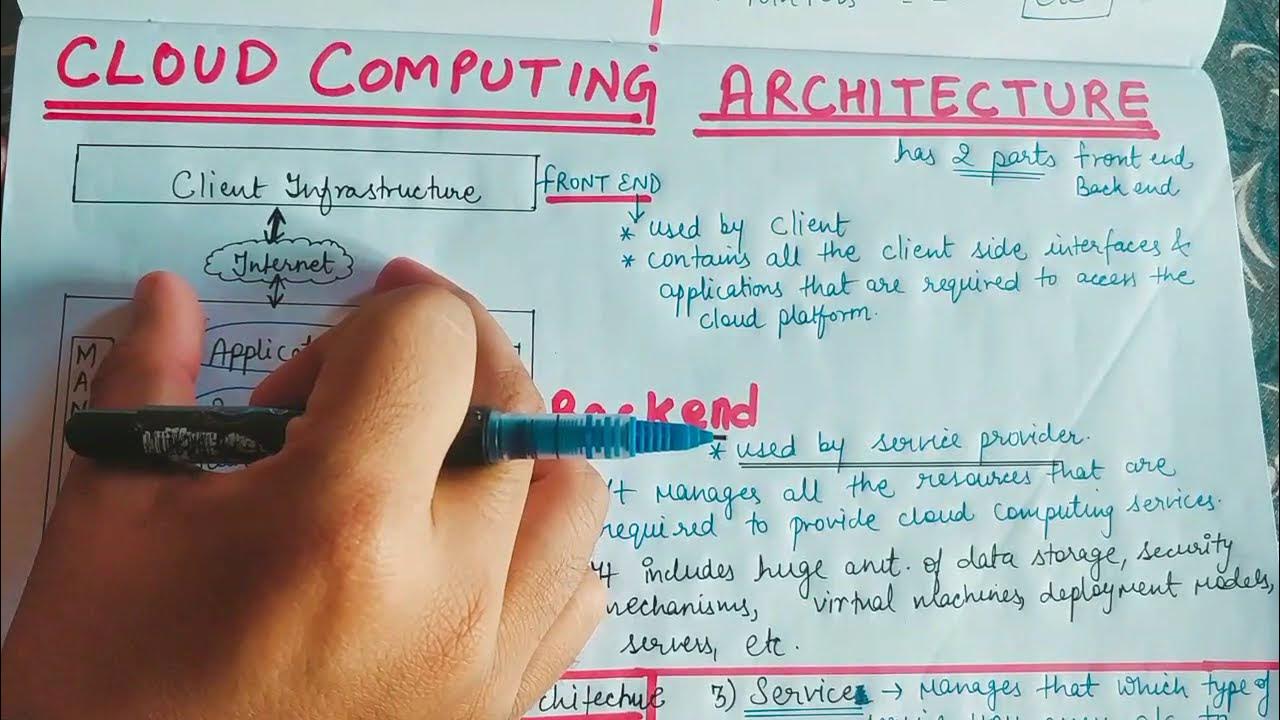 CLOUD COMPUTING ARCHITECTURE
has 2 parts front end
Back end
Client Infrastructure
FRONT END
* used by Client
* contains all the client side interfaces &
applications that are required to access the
cloud platform.
Internet
M
A
N
Backend
* used by service provider.
It manages all the resources that are
required to provide cloud computing services.
It includes huge amt. of data storage, security
mechanisms, virtual machines, deployment models,
servers, etc.
3) Service → Manages that which type of